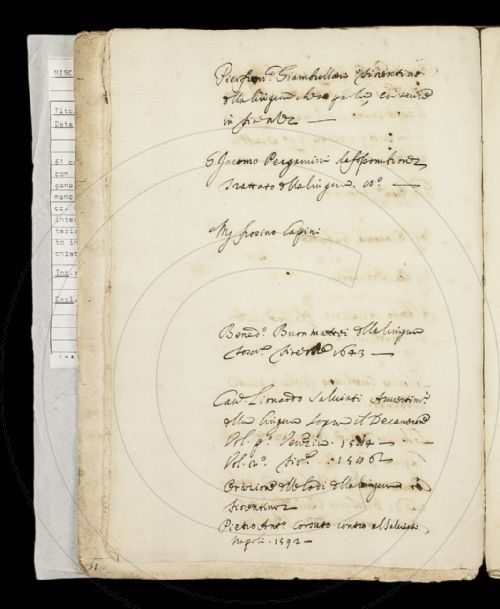 Pierfran.º Giambullari fiorentino
della lingua che si parla, e si scrive
in firenze —
S. Giacomo Pergamini da fossombrone
Trattato della lingua. 
Mg frosino Lapini
Bened.º Buonmattei della lingua
Tosc.ª firenze 1643 —
Cau.r Lionardo Salviati Auuertim.ti
della lingua sopra il Decamerone
Vol. p.º Venezia. 1584 —
Vol. 2.º fir.e 1586
Orazione delle lodi della lingua
fiorentina
Pietro Ant.º Corsuto contro al Saluiati
Napoli. 1592 —
51
MISC
Tito
Data
61 c
con
gono
mano
cc.
inte
to in
chiat